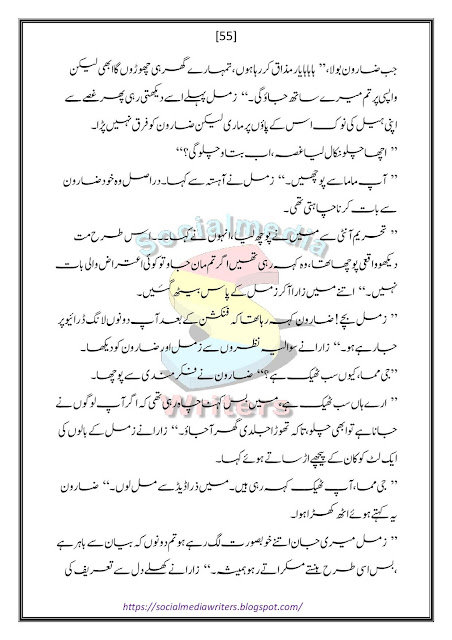 [55]
جب ضارون بولا،” ہاہاہا یار مذاق کر رہا ہوں، تمہارے گھر ہی چھوڑوں گا ابھی لیکن
واپسی پر تم میرے ساتھ جاؤ گی۔“ زمل پہلے اسے دیکھتی رہی پھر غصے سے
اپنی ہیل کی نوک اس کے پاؤں پر ماری لیکن ضارون کو فرق نہیں پڑا۔
” اچھا چلو نکال لیا غصہ، اب بتاو چلو گی؟“
” آپ ماما سے پوچھیں۔“ زمل نے آہستہ سے کہا۔ دراصل وہ خود ضارون
سے بات کرنا چاہتی تھی۔
” تحریم آنٹی سے میں نے پوچھ لیا، انہوں نے کہا ہے۔۔ اس طرح مت
دیکھو واقعی پوچھا تھا، وہ کہہ رہی تھیں اگر تم مان جاو تو کوئی اعتراض والی بات
نہیں۔“ اتنے میں زارا آ کر زمل کے پاس بیٹھ گئیں۔
” زمل بچے! ضارون کہہ رہا تھا کہ فنکشن کے بعد آپ دونوں لانگ ڈرائیو پر
جا رہے ہو۔“ زارا نے سوالیہ نظروں سے زمل اور ضارون کو دیکھا۔
”جی مما، کیوں سب ٹھیک ہے؟“ ضارون نے فکر مندی سے پوچھا۔
” ارے ہاں سب ٹھیک ہے، میں بس کہنا چاہ رہی تھی کہ اگر آپ لوگوں نے
جانا ہے تو ابھی چلو، تاکہ تھوڑا جلدی گھر آ جاؤ۔“ زارا نے زمل کے بالوں کی
ایک لٹ کو کان کے پیچھے اڑساتے ہوئے کہا۔
” جی مما، آپ ٹھیک کہہ رہی ہیں۔ میں ذرا ڈیڈ سے مل لوں۔“ ضارون
یہ کہتے ہوئے اٹھ کھڑا ہوا۔
” زمل میری جان اتنے خوبصورت لگ رہے ہو تم دونوں کہ بیان سے باہر ہے
،بس اسی طرح ہنستے مسکراتے رہو ہمیشہ۔“ زارا نے کھلے دل سے تعریف کی
Socialmedia
Writers
https://socialmediawriters.blogspot.com/